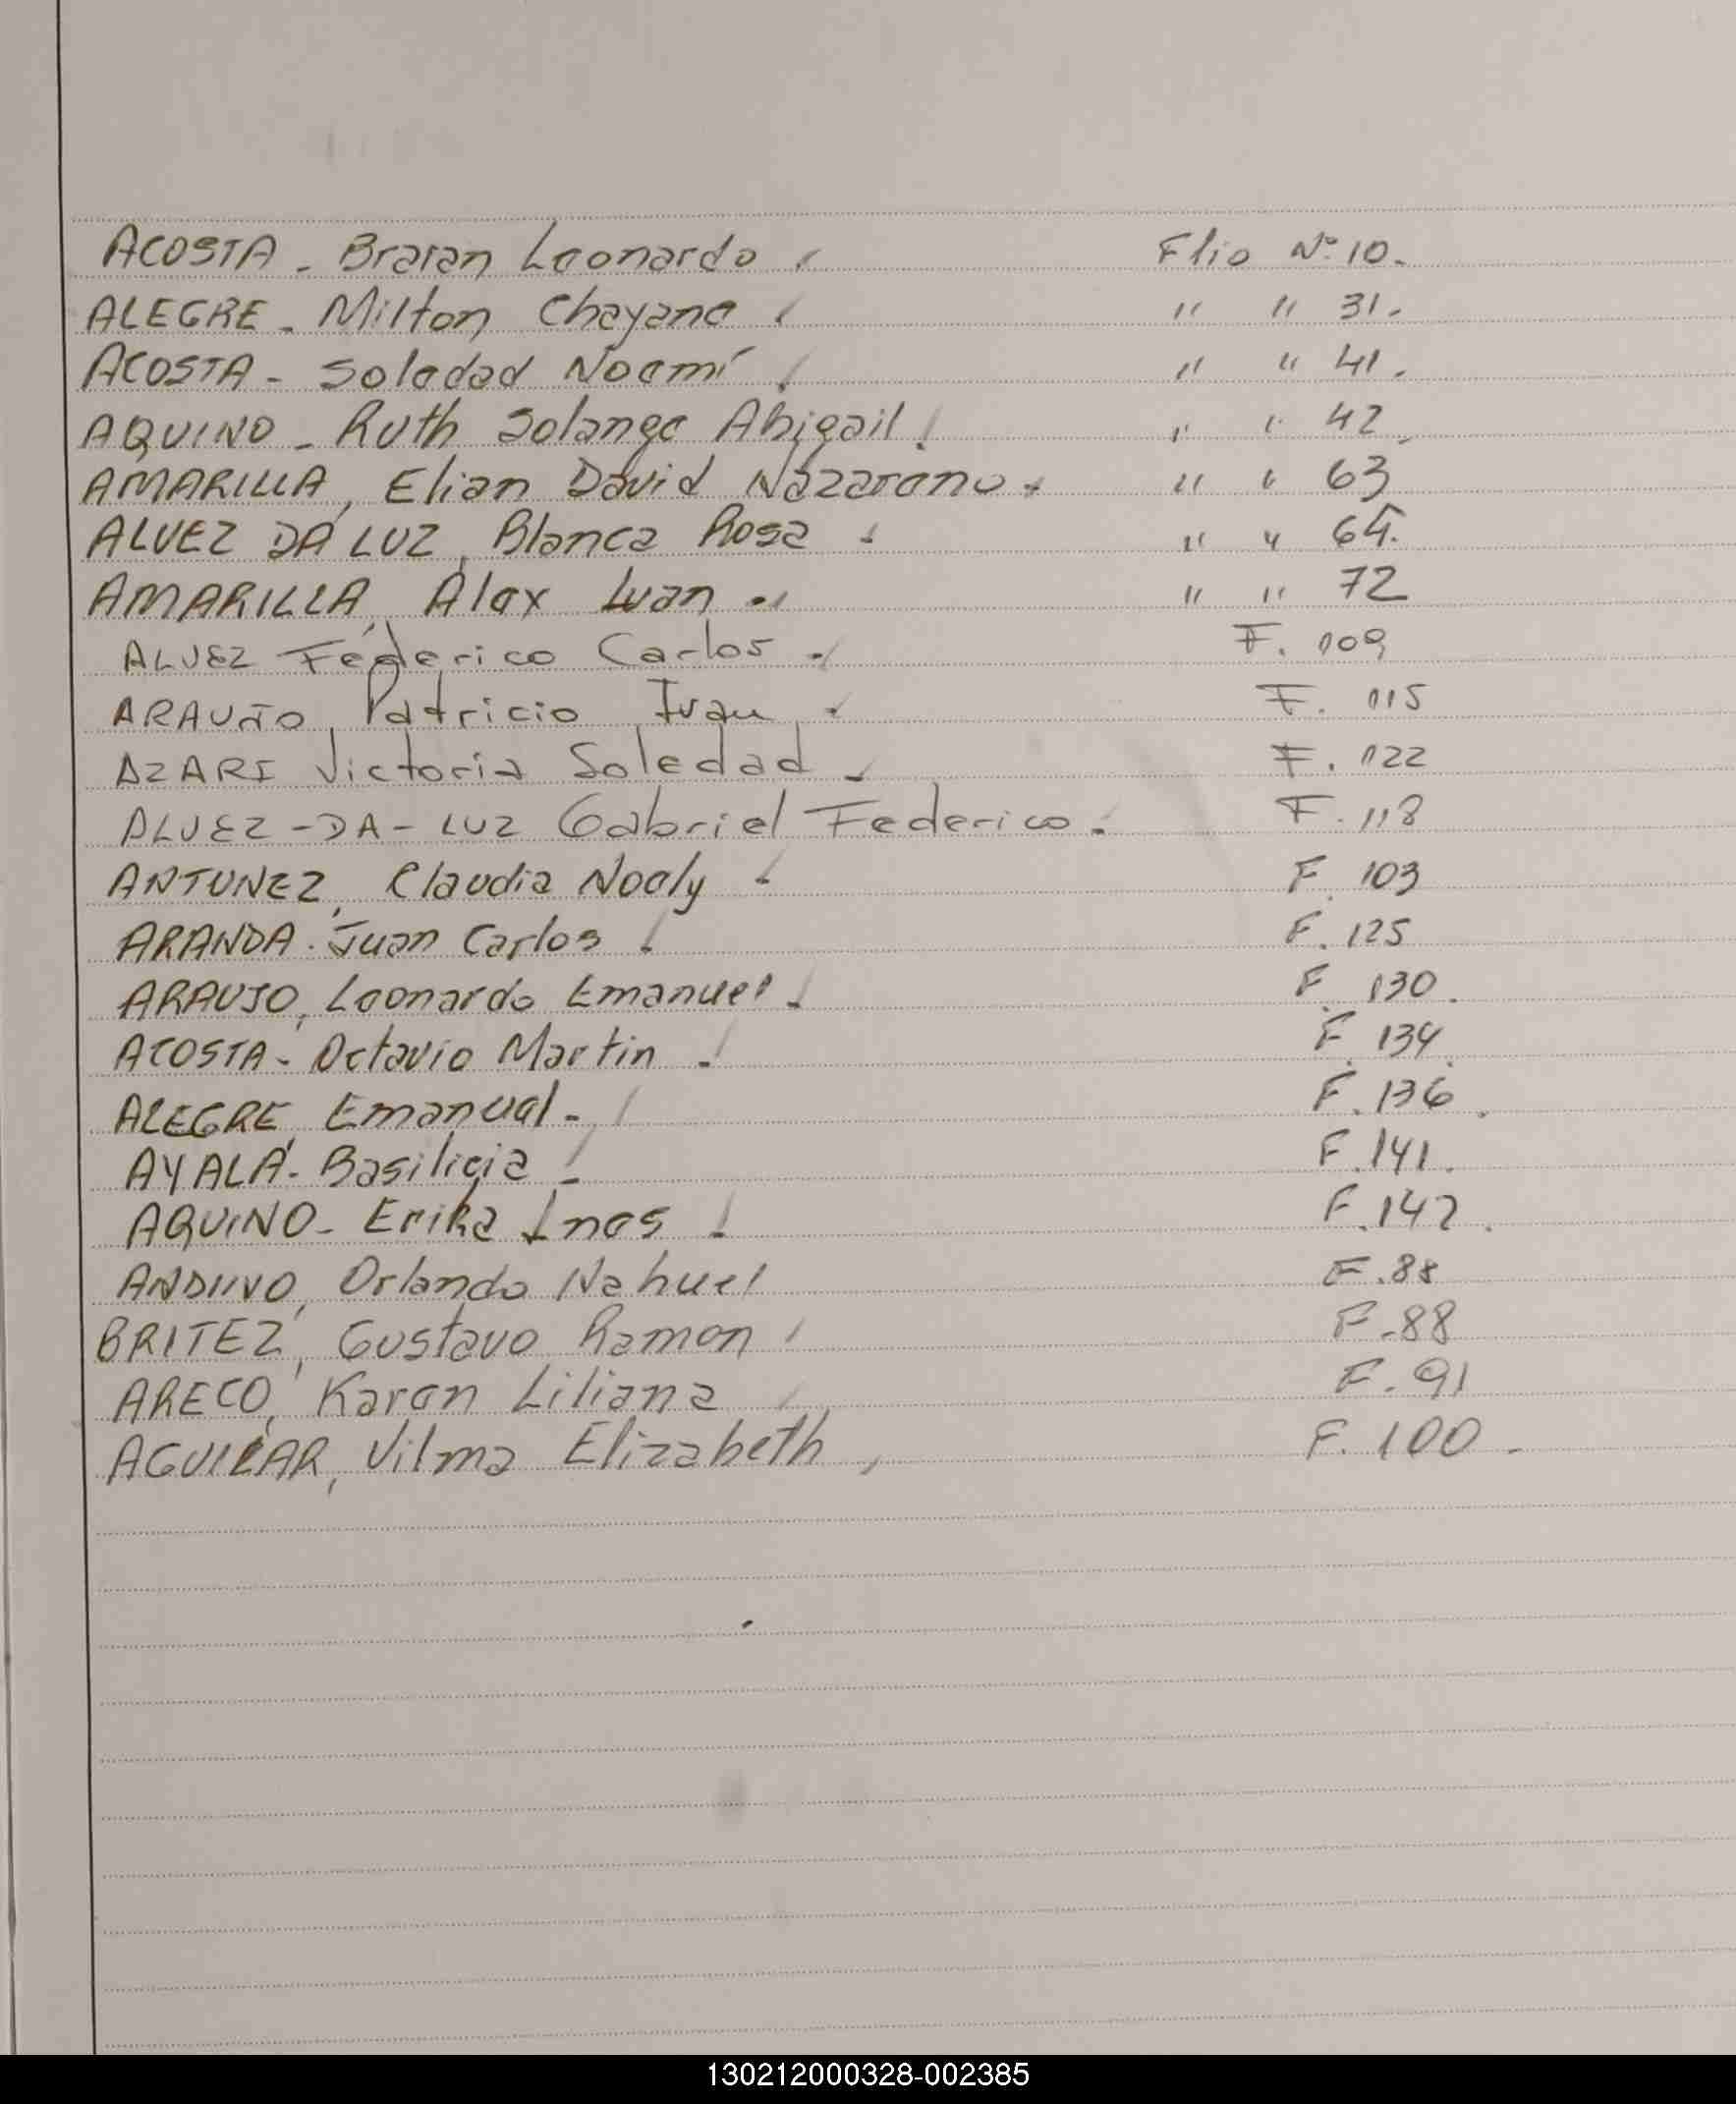 ACOSTA - Braian Leonardo . Flio Nº 10.
ALEGRE - Milton Chayane " " 31.
ACOSTA - Soledad Noemí " " 41.
AQUINO - Ruth Solange Abigail " " 42.
AMARILLA, Elian David Nazareno. " " 63
ALVEZ DA LUZ, Blanca Rosa " " 64.
AMARILLA, Alex Iván . " " 72
ALVEZ Federico Carlos . F. 109
ARAUJO, Patricio Ivan . F. 115
AZARI Victoria Soledad . F. 122
ALVEZ-DA-LUZ Gabriel Federico. F. 118
ANTUNEZ, Claudia Noely - F. 103
ARANDA. Juan Carlos . F. 125
ARAUJO, Leonardo Emanuel . F. 130.
ACOSTA - Octavio Martin . F. 134.
ALEGRE, Emanuel - F. 136.
AYALA - Basilicia - F. 141.
AQUINO - Erika Ines - F. 142.
ANDINO, Orlando Nahuel F. 88
BRITEZ, Gustavo Ramon F. 88
ARECO, Karen Liliana F. 91
AGUILAR, Vilma Elizabeth F. 100.
130212000328-002385